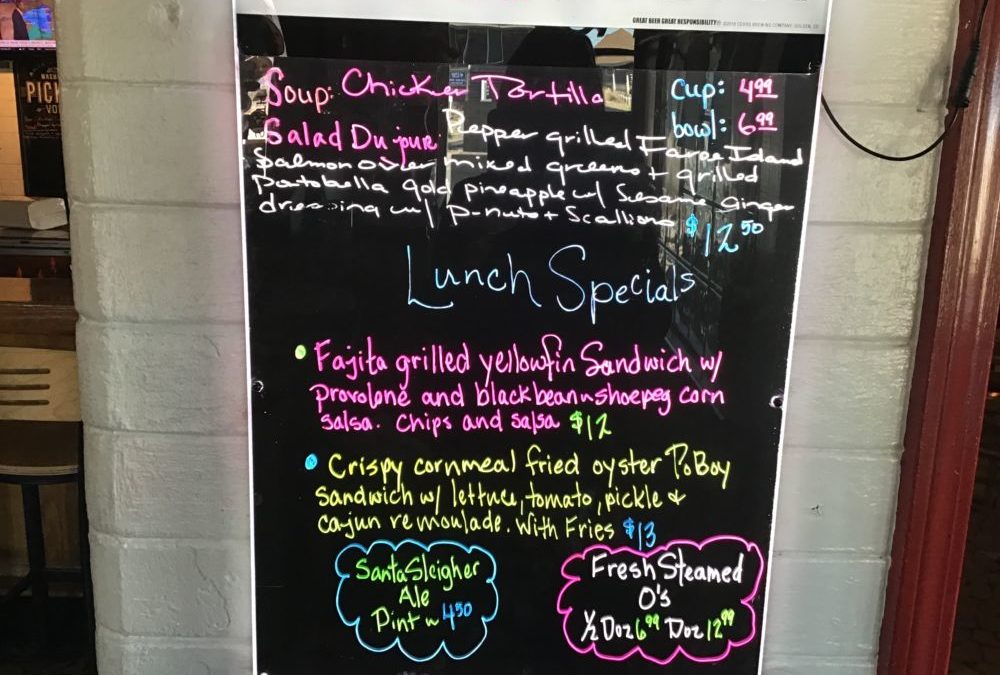 GREAT BEER GREAT RESPONSIBILITY
PICK
VO
Soup: Chicken Tortilla
cup: 4.99
bowl: 6.99
Salad Du jour: Pepper grilled Faroe Island
Salmon over mixed greens + grilled
Portobella gold pineapple w/ Sesame ginger
dressing w/ P-nuts + Scallions $12.50
Lunch Specials
Fajita grilled yellowfin Sandwich w/
provolone and blackbean n shoepeg corn
salsa. Chips and salsa $12
Crispy cornmeal fried oyster PoBoy
Sandwich w/ lettuce, tomato, pickle &
cajun remoulade. With Fries $13
Santa Sleigher
Ale
Pint ~ 4.50
Fresh Steamed
O's
½ Doz 6.99 Doz 12.99